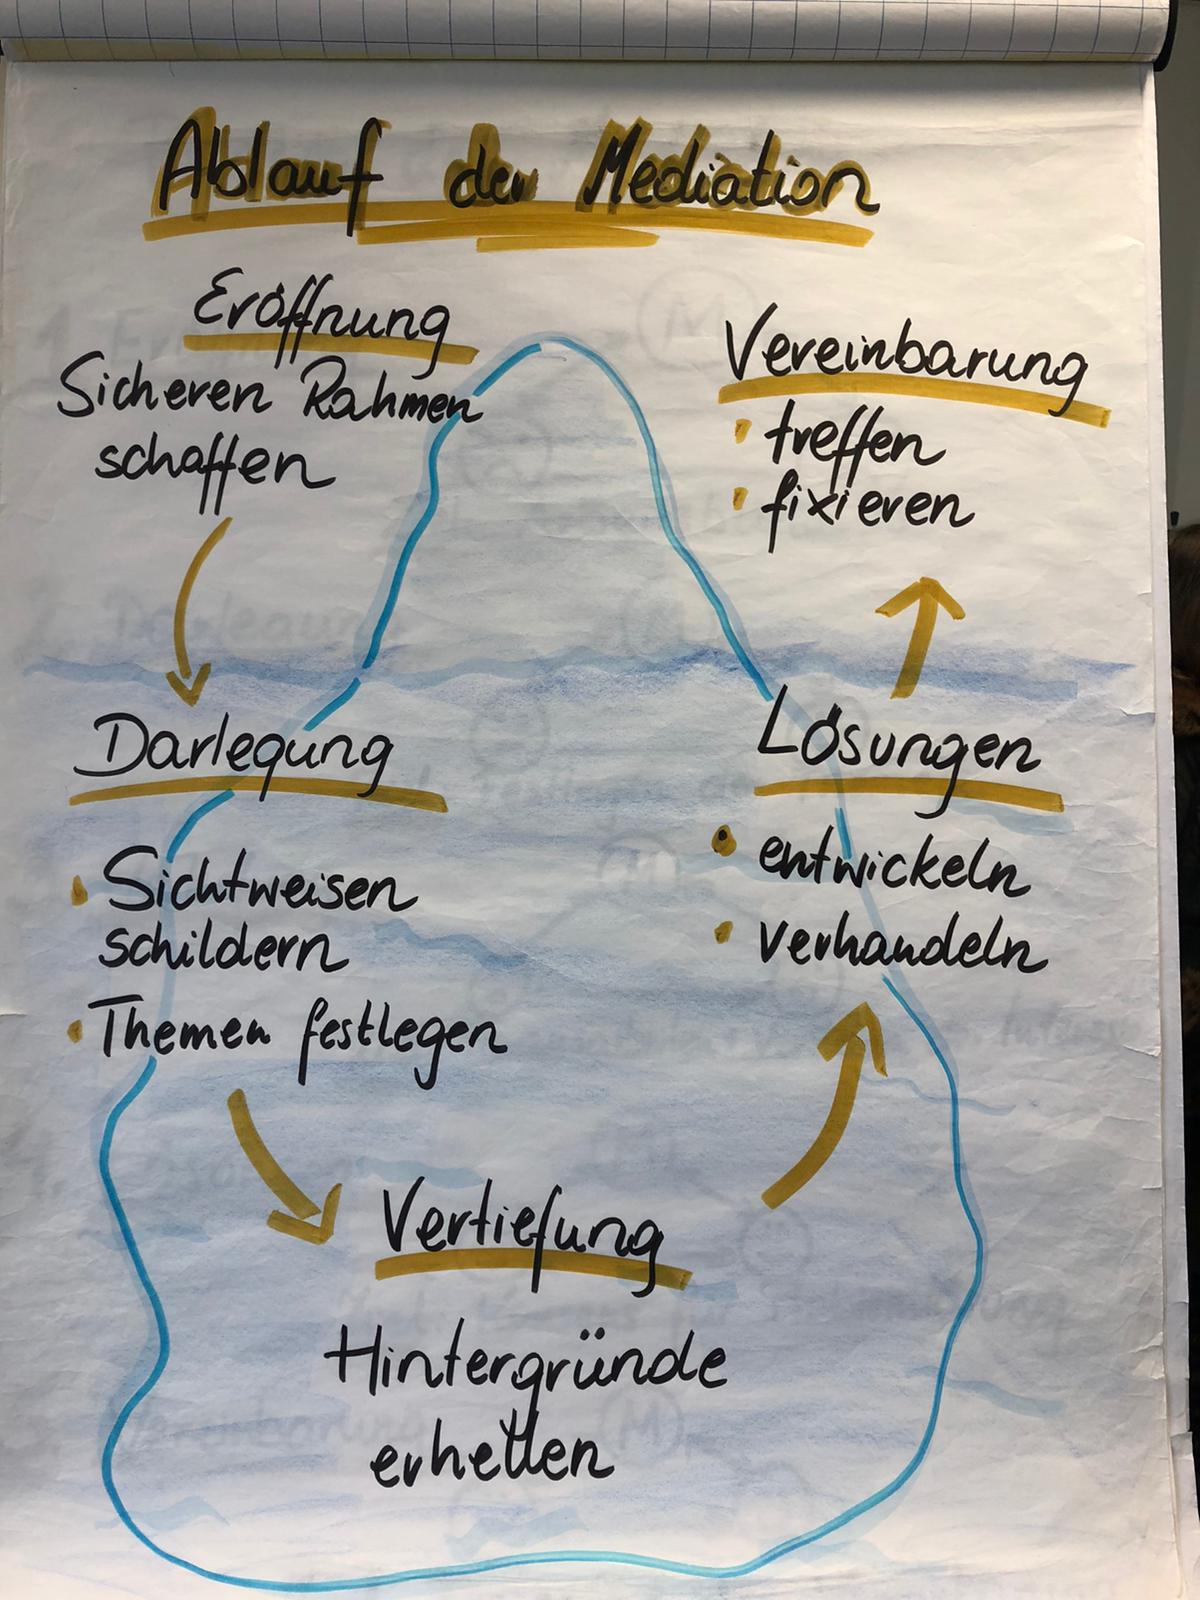 Ablauf der Mediation
Eröffnung
Sicheren Rahmen
schaffen
Darlegung
• Sichtweisen
schildern
• Themen festlegen
Vertiefung
Hintergründe
erhellen
Lösungen
• entwickeln
• verhandeln
Vereinbarung
• treffen
• fixieren